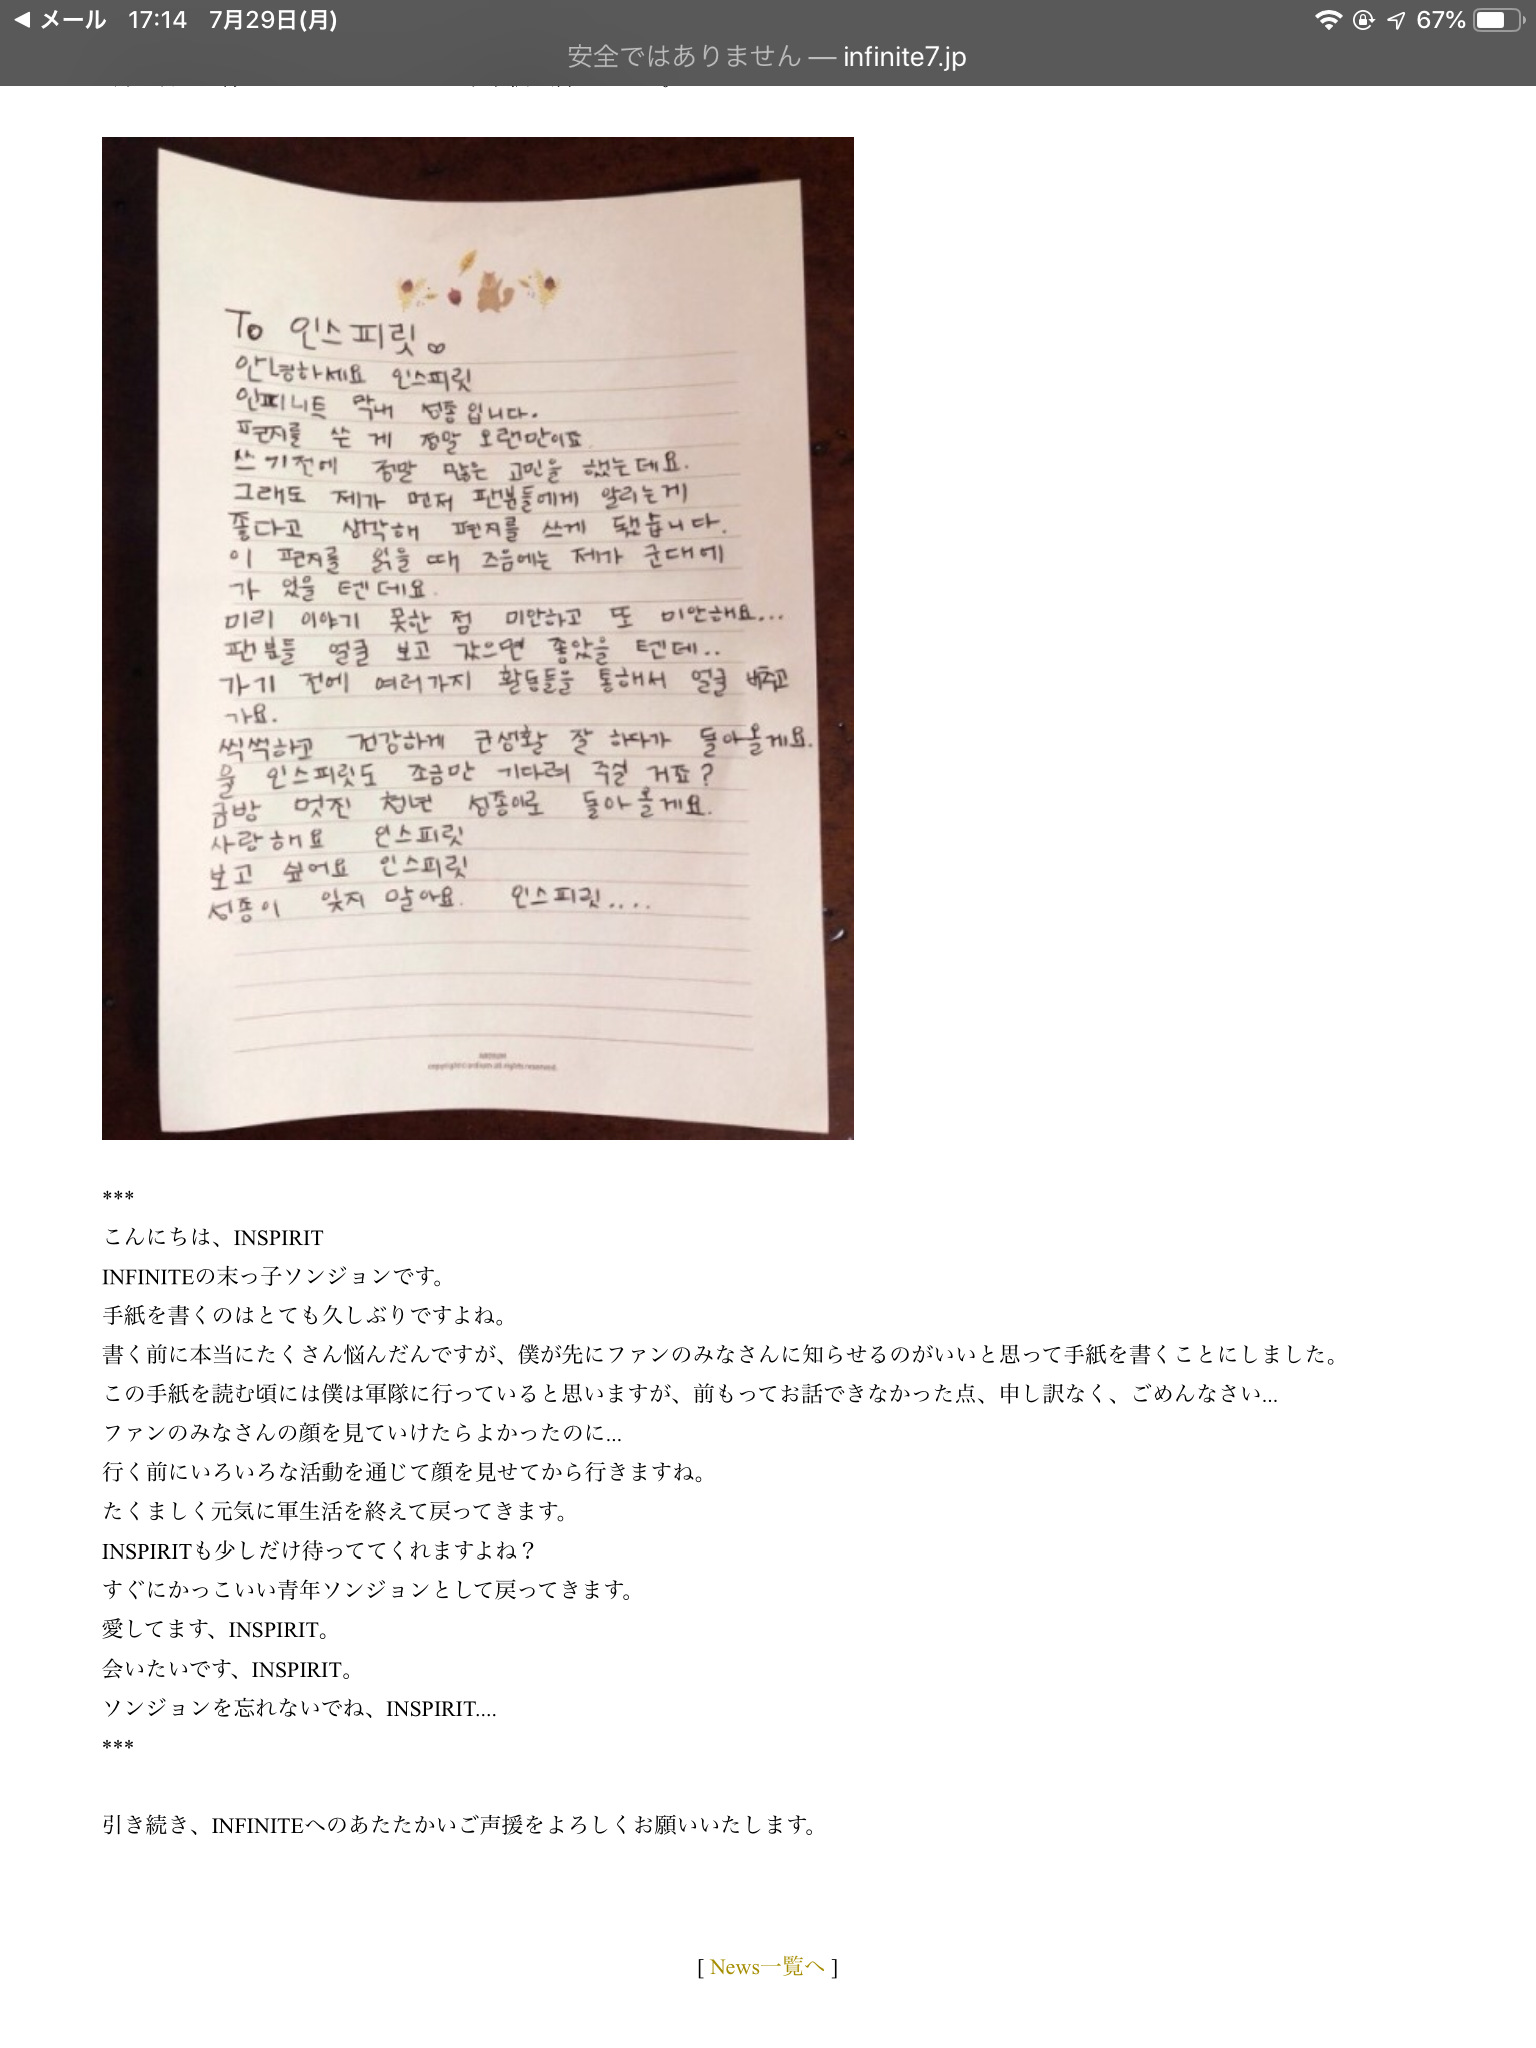 メール 17:14 7月29日(月) 67%
安全ではありません — infinite7.jp
To 인스피릿
안녕하세요 인스피릿
인피니트 막내 성종입니다.
편지를 쓴 게 정말 오랜만이죠
쓰기전에 정말 많은 고민을 했는데요.
그래도 제가 먼저 팬분들에게 알리는게
좋다고 생각해 편지를 쓰게 됐습니다.
이 편지를 읽을 때 즈음에는 제가 군대에
가 있을 텐데요.
미리 이야기 못한 점 미안하고 또 미안해요...
팬분들 얼굴 보고 갔으면 좋았을 텐데..
가기 전에 여러가지 활동들을 통해서 얼굴 비추고
가요.
씩씩하고 건강하게 군생활 잘 하다가 돌아올게요.
울 인스피릿도 조금만 기다려 주실 거죠?
금방 멋진 청년 성종이로 돌아올게요.
사랑해요 인스피릿
보고 싶어요 인스피릿
성종이 잊지 말아요. 인스피릿....
ARDIUM
copyright(c)ardium all rights reserved.
***
こんにちは、INSPIRIT
INFINITEの末っ子ソンジョンです。
手紙を書くのはとても久しぶりですよね。
書く前に本当にたくさん悩んだんですが、僕が先にファンのみなさんに知らせるのがいいと思って手紙を書くことにしました。
この手紙を読む頃には僕は軍隊に行っていると思いますが、前もってお話できなかった点、申し訳なく、ごめんなさい...
ファンのみなさんの顔を見ていけたらよかったのに...
行く前にいろいろな活動を通じて顔を見せてから行きますね。
たくましく元気に軍生活を終えて戻ってきます。
INSPIRITも少しだけ待っててくれますよね？
すぐにかっこいい青年ソンジョンとして戻ってきます。
愛してます、INSPIRIT。
会いたいです、INSPIRIT。
ソンジョンを忘れないでね、INSPIRIT....
***
引き続き、INFINITEへのあたたかいご声援をよろしくお願いいたします。
[ News一覧へ ]